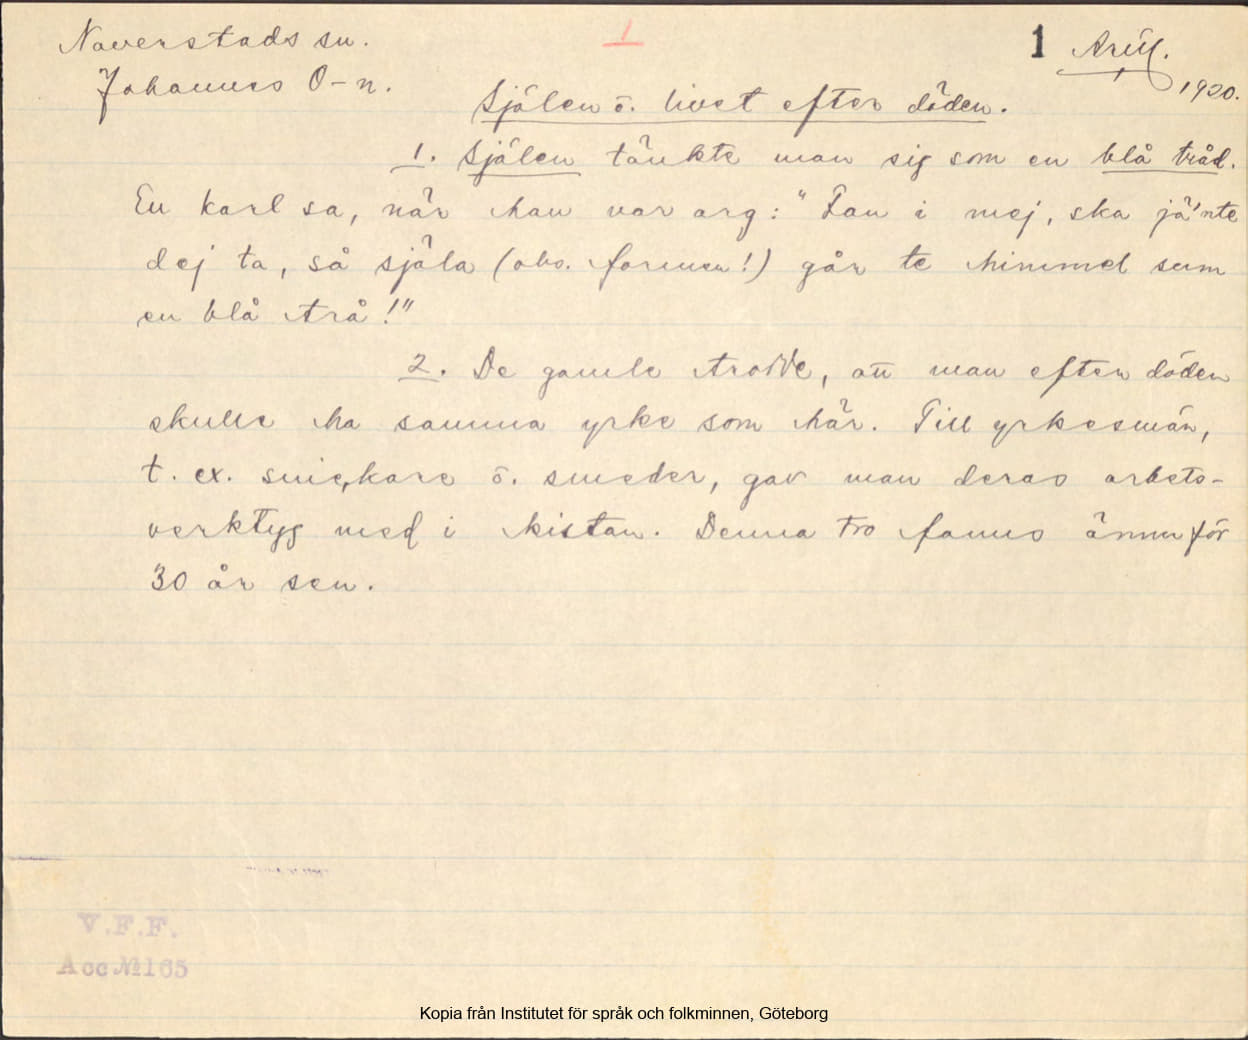 Naverstads sn.
1
1
Johannes O-n.
1920.
Själen o. livet efter döden.
1. Själen tänkte man sig som en blå tråd.
En karl sa, när han var arg: "Fan i mej, ska jä'nte
dej ta, så själa (obs. formen!) går te himmel sum
en blå trå!"
2. De gamle trodde, att man efter döden
skulle ha samma yrke som här. Till yrkesmän,
t. ex. snickare o. smeder, gav man deras arbets-
verktyg med i kistan. Denna tro fanns ännu för
30 år sen.
V.F.F.
Acc № 165
Kopia från Institutet för språk och folkminnen, Göteborg